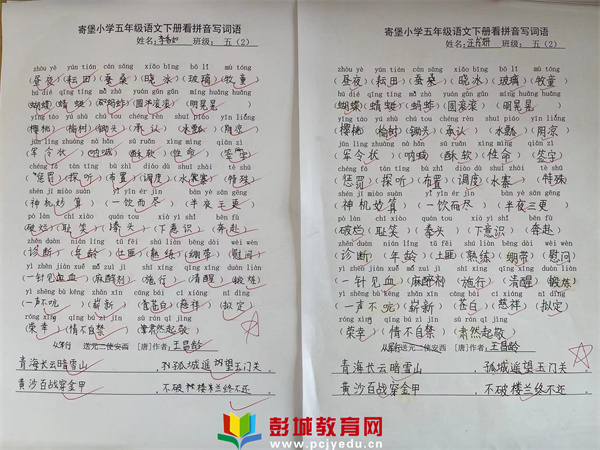 寄堡小学五年级语文下册看拼音写词语
姓名: 班级: 五(2)
zhòu yè yún tián sāng xiǎo bīng bō lí mù tóng
(昼夜)(耘田)(桑葉)(晓冰)(玻璃)(牧童)
hú dié qīng tíng mà zha yuán gǔn gǔn míng huǎng huǎng
(蝴蝶)(蜻蜓)(蚂蚱)(圆滚滚)(明晃晃)
yīng táo yú shù chú tou chéng rèn shuǐ piáo yìn liáng
(樱桃)(榆树)(锄头)(承认)(水瓢)(阴凉)
jūn lìng zhuàng nà hǎn sū ruǎn xìng mìng qiān zì
(军令状)(呐喊)(酥软)(性命)(签字)
chéng fá tàn tīng bù zhì diào dù shuǐ zhài tè shū
(惩罚)(探听)(布置)(调度)(水寨)(特殊)
shén jī miào suàn yì yǐn ér jìn bàn yè sān gēng
(神机妙算)(一饮而尽)(半夜三更)
pò làn chǐ xiào quán tou xià yì shí bēn fù
(破烂)(耻笑)(拳头)(下意识)(奔赴)
zhěn duàn nián líng tǔ fěi shú liàn bēng dài wèi wèn
(诊断)(年龄)(土匪)(熟练)(绷带)(慰问)
yì zhēn jiàn xuě má zuì jì shī xíng qīng xǐng duàn liàn
(一针见血)(麻醉剂)(施行)(清醒)(锻炼)
yì shēng bù kēng zhǎn xīn cāng bái cí xiáng nǐ dìng
(一声不吭)(崭新)(苍白)(慈祥)(拟定)
róng xìng qíng bú zì jīn sù rán qǐ jìng
(荣幸)(情不自禁)(肃然起敬)
从军行 送元二使安西 [唐]作者:王昌龄
青海长云暗雪山,孤城遥望玉门关。
黄沙百战穿金甲,不破楼兰终不还。
寄堡小学五年级语文下册看拼音写词语
姓名:汪芮妍 班级: 五(2)
zhòu yè yún tián sāng xiǎo bīng bō lí mù tóng
(昼夜)(耘田)(桑葉)(晓冰)(玻璃)(牧童)
hú dié qīng tíng mà zha yuán gǔn gǔn míng huǎng huǎng
(蝴蝶)(蜻蜓)(蚂蚱)(圆滚滚)(明晃晃)
yīng táo yú shù chú tou chéng rèn shuǐ piáo yìn liáng
(樱桃)(榆树)(锄头)(承认)(水瓢)(阴凉)
jūn lìng zhuàng nà hǎn sū ruǎn xìng mìng qiān zì
(军令状)(呐喊)(酥软)(性命)(签字)
chéng fá tàn tīng bù zhì diào dù shuǐ zhài tè shū
(惩罚)(探听)(布置)(调度)(水寨)(特殊)
shén jī miào suàn yì yǐn ér jìn bàn yè sān gēng
(神机妙算)(一饮而尽)(半夜三更)
pò làn chǐ xiào quán tou xià yì shí bēn fù
(破烂)(耻笑)(拳头)(下意识)(奔赴)
zhěn duàn nián líng tǔ fěi shú liàn bēng dài wèi wèn
(诊断)(年龄)(土匪)(熟练)(绷带)(慰问)
yì zhēn jiàn xuě má zuì jì shī xíng qīng xǐng duàn liàn
(一针见血)(麻醉剂)(施行)(清醒)(锻炼)
yì shēng bù kēng zhǎn xīn cāng bái cí xiáng nǐ dìng
(一声不吭)(崭新)(苍白)(慈祥)(拟定)
róng xìng qíng bú zì jīn sù rán qǐ jìng
(荣幸)(情不自禁)(肃然起敬)
从军行 送元二使安西 [唐]作者:王昌龄
青海长云暗雪山,孤城遥望玉门关。
黄沙百战穿金甲,不破楼兰终不还。
彭城教育网
www.pcjyedu.cn